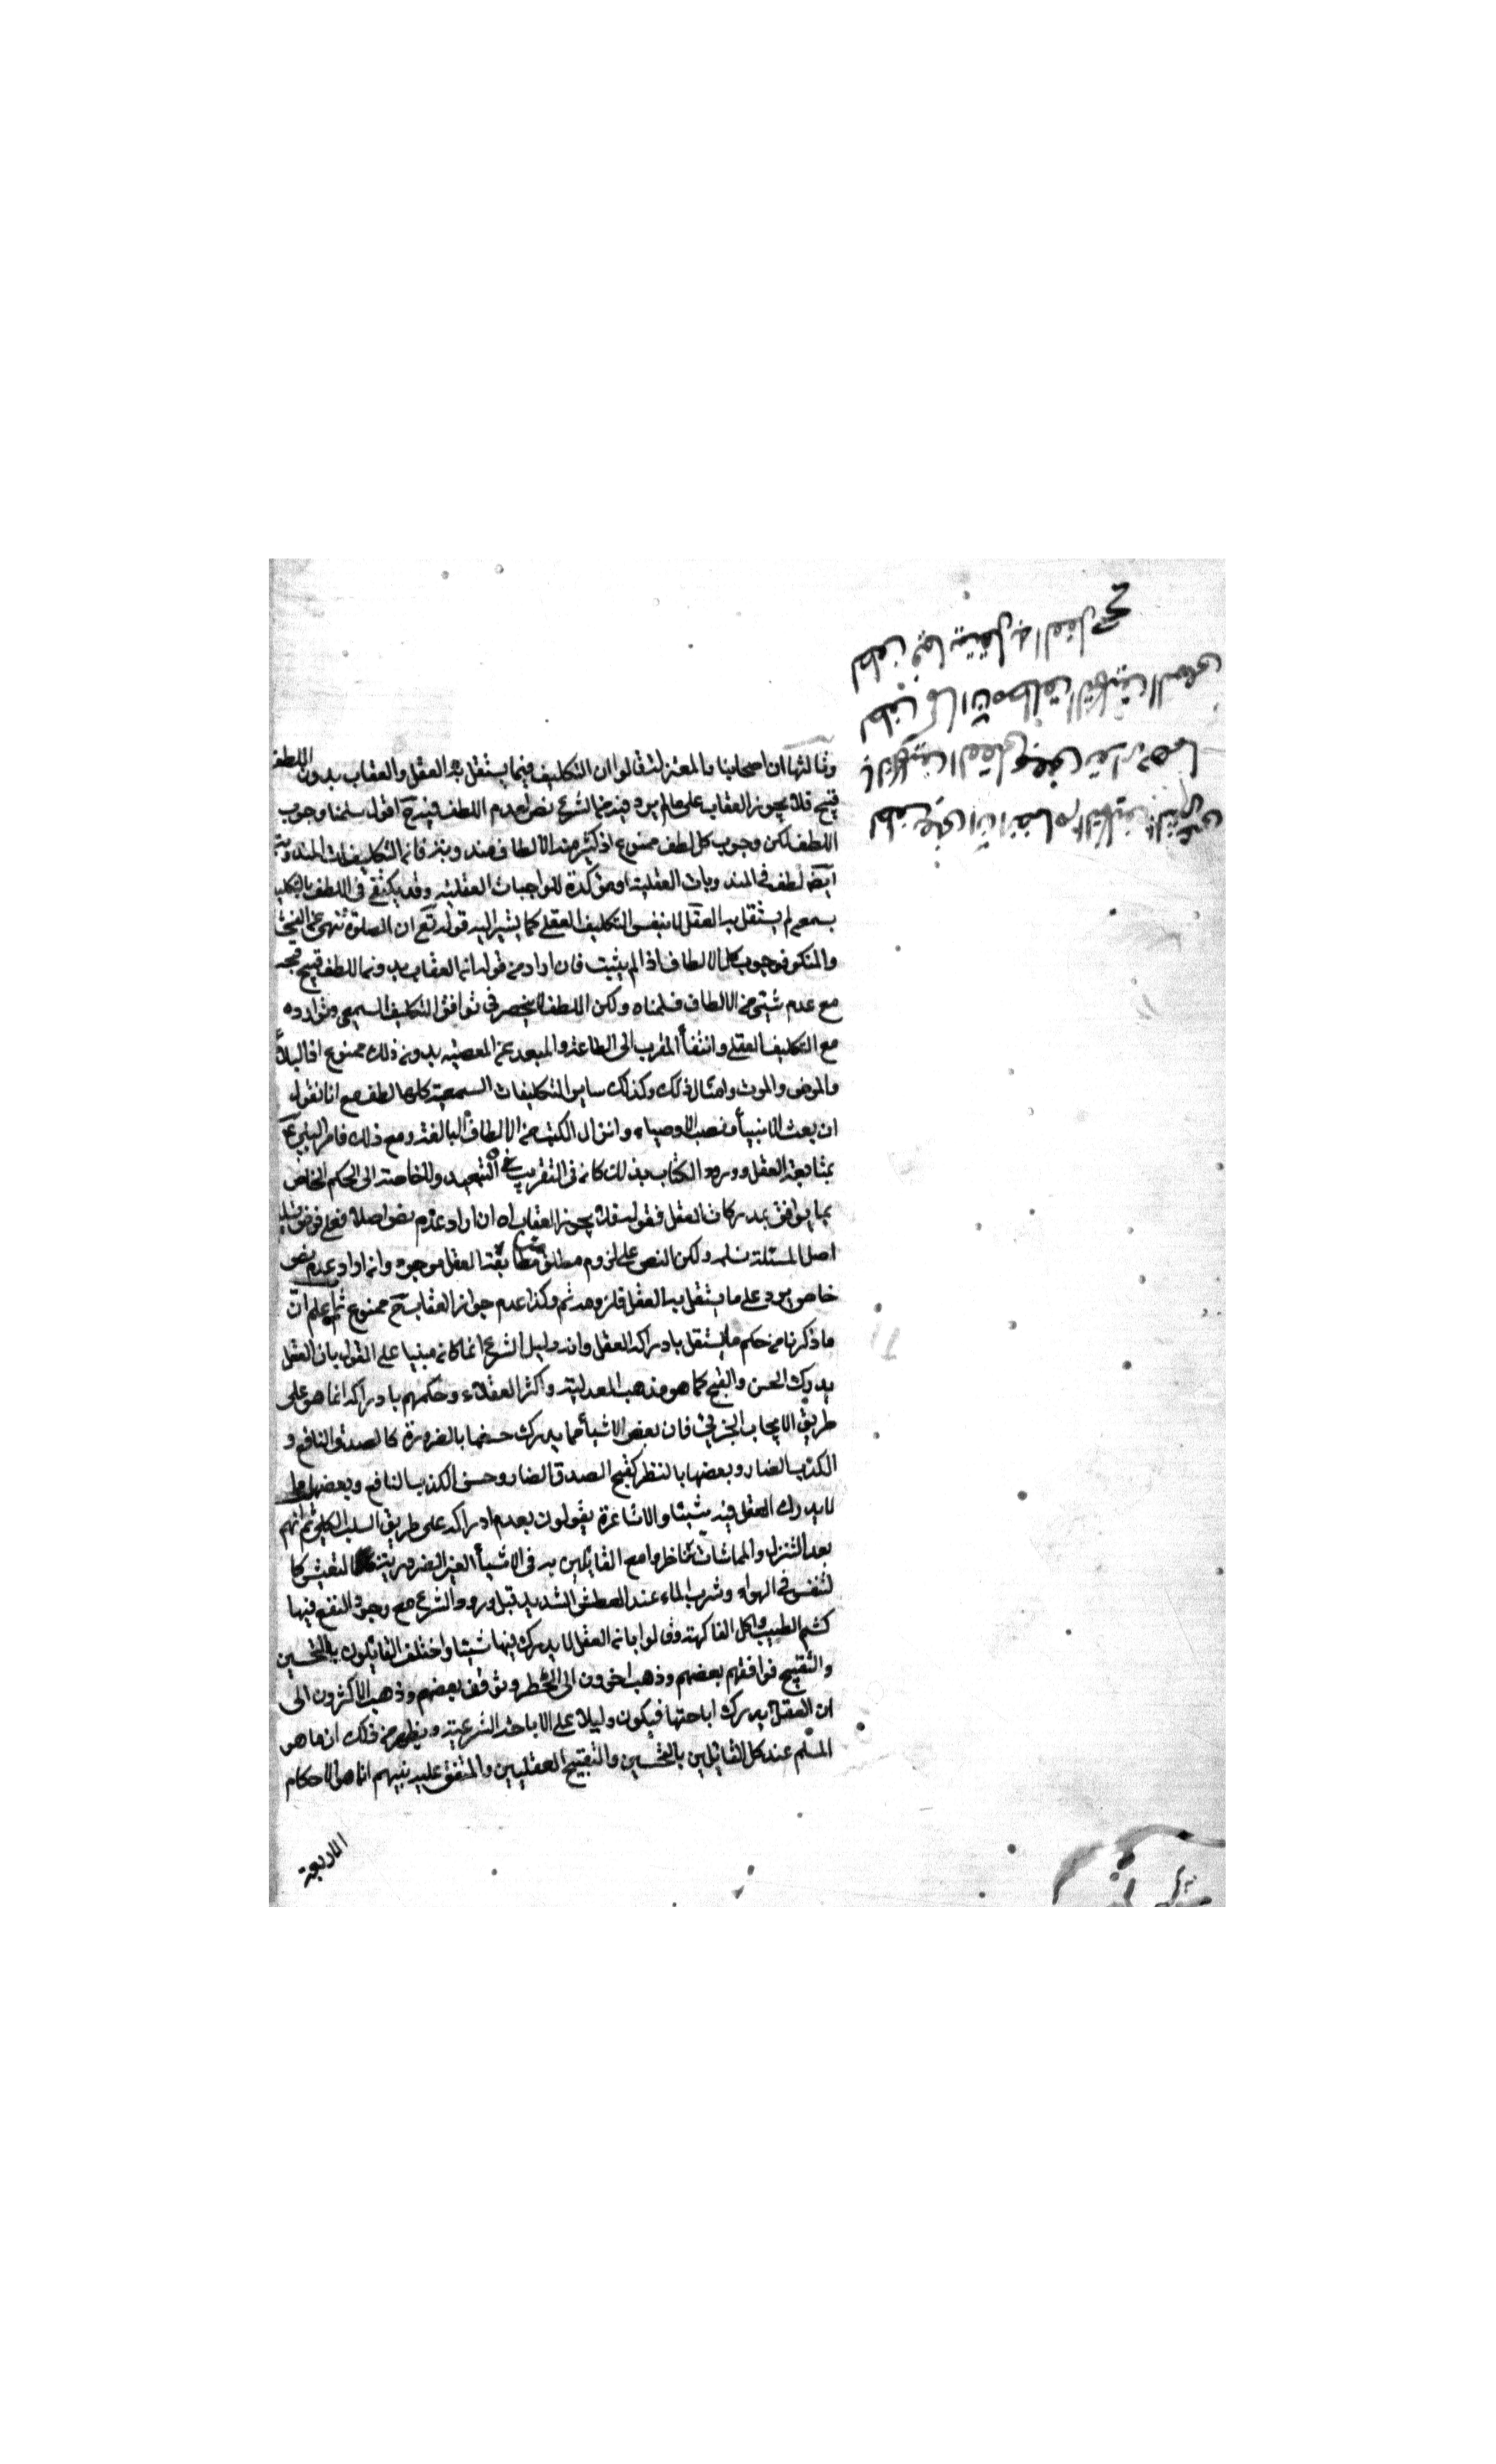 وثالثها ان اصحابنا والمعتزلة قالوا ان التكليف فيما يستقل به العقل والعقاب بدون اللطف
قبيح فلا يجوز العقاب على ما لم يرد فيه من الشرع نص لعدم اللطف فيه ح اقول سلمنا وجوب
اللطف لكن وجوب كل لطف ممنوع اذ كثير من الالطاف مندوبة فان التكليفات المندوبة
ايضا لطف في المندوبات العقلية او مؤكدة للواجبات العقلية وقد يكتفى في اللطف بالتكليف
بسمعي لم يستقل به العقل لا بنفس التكليف العقلي كما يشير اليه قوله تع ان الصلوة تنهى عن الفحشا
والمنكر فوجوب كل الالطاف اذا لم يثبت فان اراد من قوله ان العقاب بدون اللطف قبيح قبحه
مع عدم شيئ من الالطاف فسلمناه ولكن اللطف لا ينحصر في توافق التكليف السمعي وتوارده
مع التكليف العقلي وانتفاء المقرب الى الطاعة والمبعد عن المعصية بدون ذلك ممنوع اذ البلاء
والمرض والموت وامثال ذلك وكذلك ساير التكليفات السمعية كلها لطف مع انا نقول
ان بعث الانبياء ونصب الاوصياء وانزال الكتب من الالطاف البالغة ومع ذلك فامر النبي ع
بمتابعة العقل وورود الكتاب بذلك كان في التقريب والتبعيد ولا حاجة الى الحكم الخاص
بما يوافق مدركات العقل فقوله فلا يجوز العقاب اه ان اراد عدم نص اصلا فعلى فرض تسليم
اصل المسئلة نسلمه ولكن النص على لزوم مطلق متابعة العقل موجود وان اراد عدم نص
خاص يرد على ما يستقل به العقل فلزومه ثم وكذا عدم جواز العقاب ح ممنوع ثم اعلم ان
ما ذكرنا من حكم ما يستقل بادراكه العقل وانه دليل الشرع انما كان مبنيا على القول بان العقل
يدرك الحسن والقبح كما هو مذهب العدلية واكثر العقلاء وحكمهم بادراكه انما هو على
طريق الايجاب الجزئي فان بعض الاشياء مما يدرك حسنها بالضرورة كالصدق النافع و
الكذب الضار وبعضها بالنظر كقبح الصدق الضار وحسن الكذب النافع وبعضها مما
لا يدرك العقل فيه شيئا والاشاعرة يقولون بعدم ادراكه على طريق السلب الكلي ثم انهم
بعد التنزل والمماشات تناظروا مع القائلين به في الاشياء الغير الضرورية للتعيش كا
لتنفس في الهواء وشرب الماء عند العطش الشديد قبل ورود الشرع مع وجود النفع فيها
كشم الطيب واكل الفاكهة وقالوا بان العقل لا يدرك فيها شيئا واختلف القائلون بالتحسين
والتقبيح فوافقهم بعضهم وذهب اخرون الى الحظر وتوقف بعضهم وذهب الاكثرون الى
ان العقل يدرك اباحتها فيكون دليلا على الاباحة الشرعية ويظهر من ذلك ان ما هو
المسلم عند كل القائلين بالتحسين والتقبيح العقليين والمتفق عليه بينهم انما هو الاحكام
الاربعة